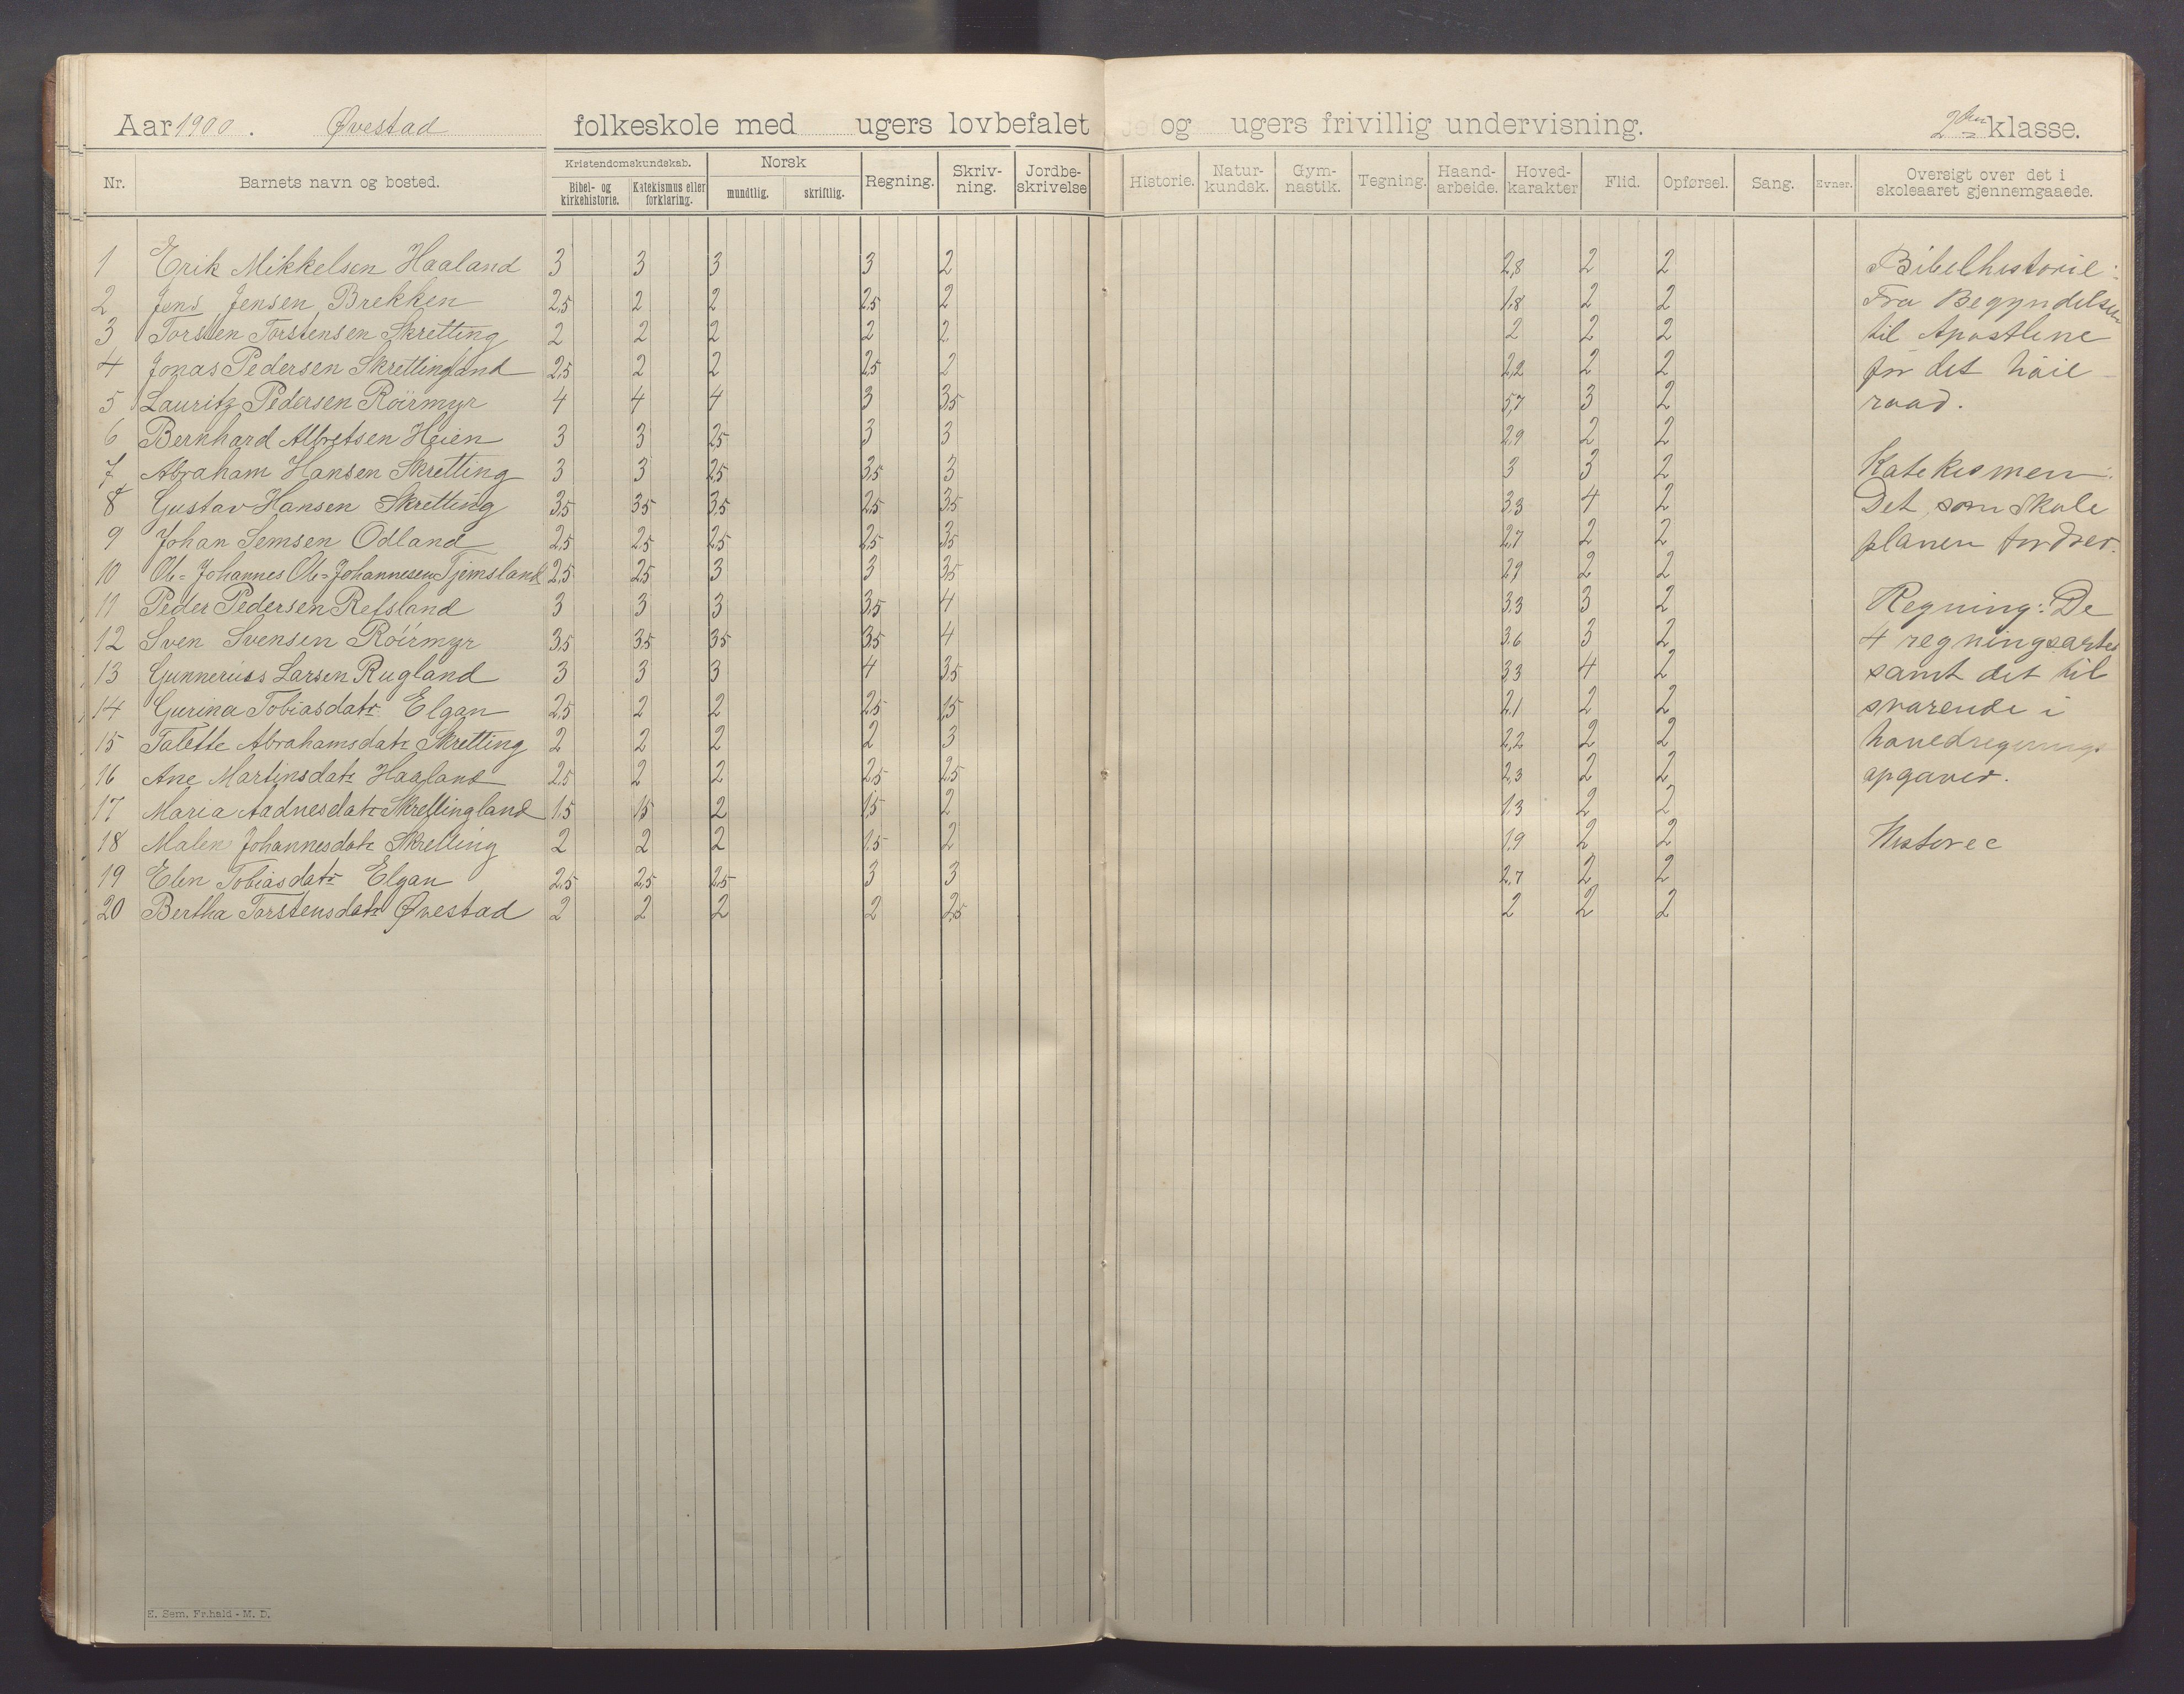 Aar 1900. Øvestad folkeskole med ugers lovbefalet og ugers frivillig undervisning. 2den klasse.
Nr. Barnets navn og bosted. Kristendomskundskab. Bibel- og kirkehistorie. Katekismus eller forklaring. Norsk mundtlig. skriftlig. Regning. Skriv-ning. Jordbe-skrivelse Historie. Natur-kundsk. Gym-nastik. Tegning. Haand-arbeide. Hoved-karakter Flid. Opførsel. Sang. Evner. Oversigt over det i skoleaaret gjennemgaaede.
1 Erik Mikkelsen Haaland 3 3 3 3 2 2,8 2 2
2 Jens Jensen Brekken 2,5 2 2 2,5 2 1,8 2 2
3 Torsten Torstensen Skretting 2 2 2 2 2 2 2 2
4 Jonas Pedersen Skrettingland 2,5 2 2 2,5 2 2,2 2 2
5 Lauritz Pedersen Röirmyr 4 4 4 3 3,5 5,7 3 2
6 Bernhard Albretsen Heien 3 3 2,5 3 3 2,9 2 2
7 Abraham Hansen Skretting 3 3 2,5 3,5 3 3 3 2
8 Gustav Hansen Skretting 3,5 3,5 3,5 2,5 3,5 3,3 4 2
9 Johan Semsen Odland 2,5 2,5 2,5 2,5 3,5 2,7 2 2
10 Ole-Johannes Ole-Johannesen Tjemsland 2,5 2,5 3 3 3,5 2,9 2 2
11 Peder Pedersen Refsland 3 3 3 3,5 4 3,3 3 2
12 Sven Svensen Röirmyr 3,5 3,5 3,5 3,5 4 3,6 3 2
13 Gunnerius Larsen Rugland 3 3 3 4 3,5 3,3 4 2
14 Gurina Tobiasdatr Elgan 2,5 2 2 2,5 1,5 2,1 2 2
15 Talette Abrahamsdatr Skretting 2 2 2 2 3 2,2 2 2
16 Ane Martinsdatr Haaland 2,5 2 2 2,5 2,5 2,3 2 2
17 Maria Aadnesdatr Skrettingland 1,5 1,5 2 1,5 2 1,3 2 2
18 Malen Johannesdatr Skretting 2 2 2 1,5 2 1,9 2 2
19 Elen Tobiasdatr Elgan 2,5 2,5 2,5 3 3 2,7 2 2
20 Bertha Torstensdatr Øvestad 2 2 2 2 2,5 2 2 2
Bibelhistorie:
Fra Begyndelsen
til Apostlene
for det høie
raad.
Katekismen:
Det, som skole
planen fordrer.
Regning: De
4 regningsarter
samt det til
svarende i
hovedregnings
opgaver.
E. Sem. Fr.hald - M. D.